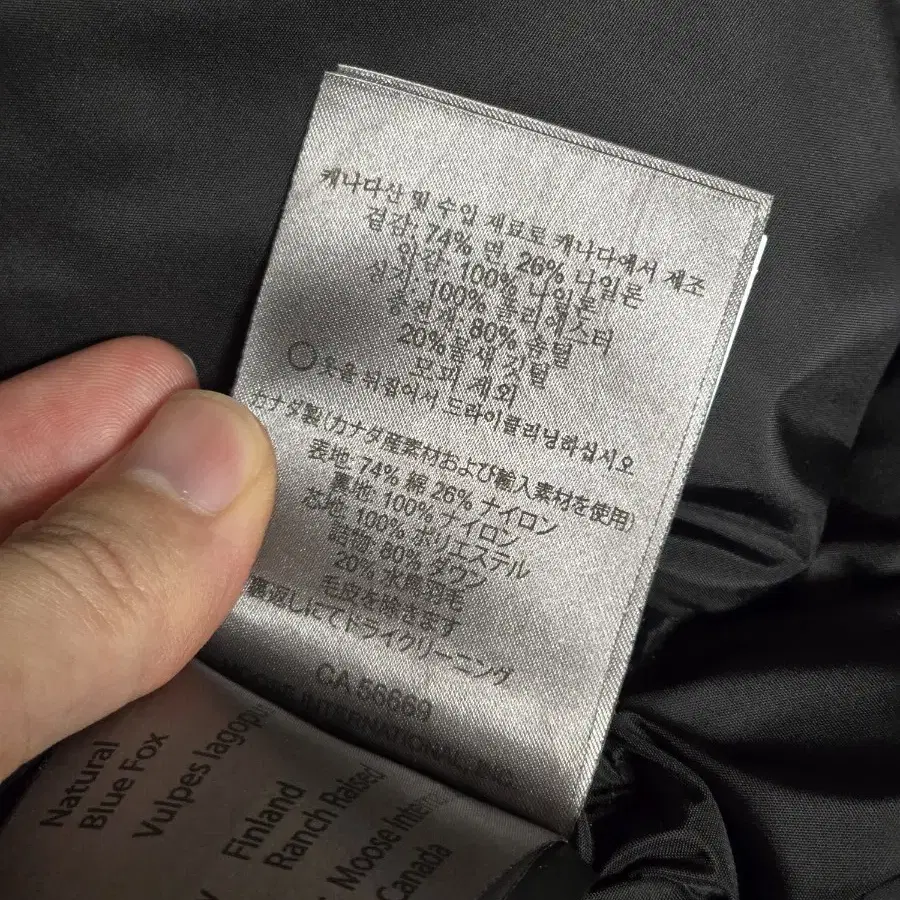 캐나다산 및 수입 재료로 캐나다에서 제조
겉감: 74% 면 26% 나일론
안감: 100% 나일론
심지: 100% 폴리에스터
충전재: 80% 솜털
20%물새 깃털
모피 제외
옷을 뒤집어서 드라이클리닝하십시오
カナダ製(カナダ産素材および輸入素材を使用)
表地: 74% 綿 26% ナイロン
裏地: 100% ナイロン
芯地: 100% ポリエステル
詰物: 80% ダウン
20% 水鳥羽毛
毛皮を除きます
裏返しにてドライクリーニング
CA 56669
INTERNATIONAL
Natural
Blue Fox
Vulpes lagopu
Finland
Ranch Raised
Moose Intern
Canada